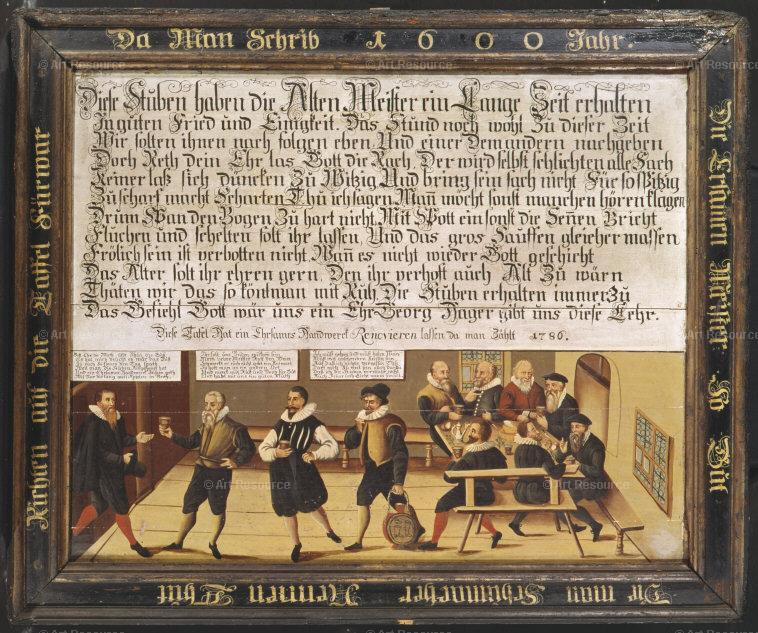 Da Man Schrib 1600 Jahr.
Diese Stuben haben die Alten Meister ein Lange Zeit erhalten
In guten Fried und Einigkeit. Das Stund noch wohl Zu dieser Zeit
Wir solten ihnen nach folgen eben Und einer dem andern nachgeben
Doch Reth dein Ehr las Gott die Rach Der wird selbst schlichten alle sach
Keiner laß sich Düncken Zu Witzig Und bring sein sach nicht Für so spitzig
Zu scharf macht Scharten Thu ich sagen Man möcht sonst manchen hören klagen
Drum Span den Bogen Zu hart nicht Mit Spott ein sonst die Sennen Bricht
Fluchen und schelten solt ihr lassen, Und das gros Sauffen gleicher massen
Frölich sein ist verbotten nicht, Wan es nicht wieder Gott geschicht
Das Alter solt ihr ehren gern, Den ihr verhoft auch Alt Zu wärn
Thäten wir das so köntman mit Ruh Die Stuben erhalten immer Zu
Das Befiehlt Gott war uns ein Ehr Georg Hager gibt uns diese Lehr.
Diese Tafel Hat ein Ehrsames Handwerck Renovieren lassen da man Zählt 1786.
Die Ersamen Maister So
Die man Schumacher Nennen Thut
Richten auf die Taffel Fürwar
© Art Resource